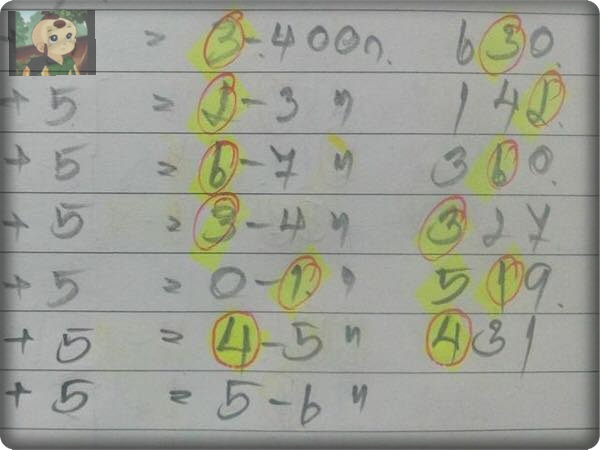 + = 3-4 ออก. 630.
+ 5 = 2-3 " 142.
+ 5 = 6-7 " 360.
+ 5 = 3-4 " 327
+ 5 = 0-1 " 519.
+ 5 = 4-5 " 431
+ 5 = 5-6 "